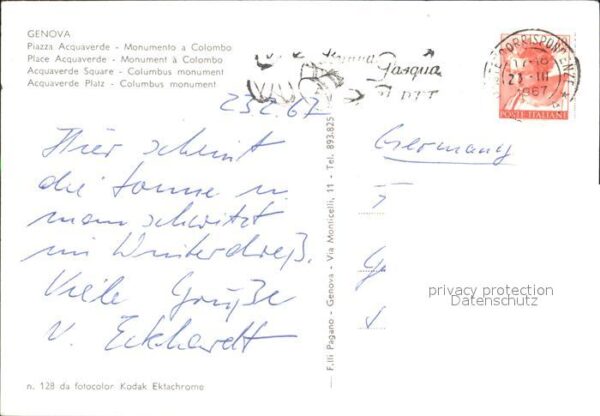 GENOVA
Piazza Acquaverde - Monumento a Colombo
Place Acquaverde - Monument à Colombo
Acquaverde Square - Columbus monument
Acquaverde Platz - Columbus monument
Pasqua
CORRISPONDENZE
17-18
23 III
1967
POSTE ITALIANE
23.2.67
Hier scheint
die Sonne u.
man schwitzt
im Winterdreß.
Viele Grüße
v. Eckhardt
Germany
F.lli Pagano - Genova - Via Monticelli, 11 - Tel. 893.825
privacy protection
Datenschutz
n. 128 da fotocolor Kodak Ektachrome